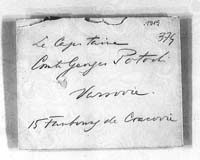 1919
374
Le Capitaine
Comte Georges Potocki
Varsovie
15 Faubourg de Cracovie